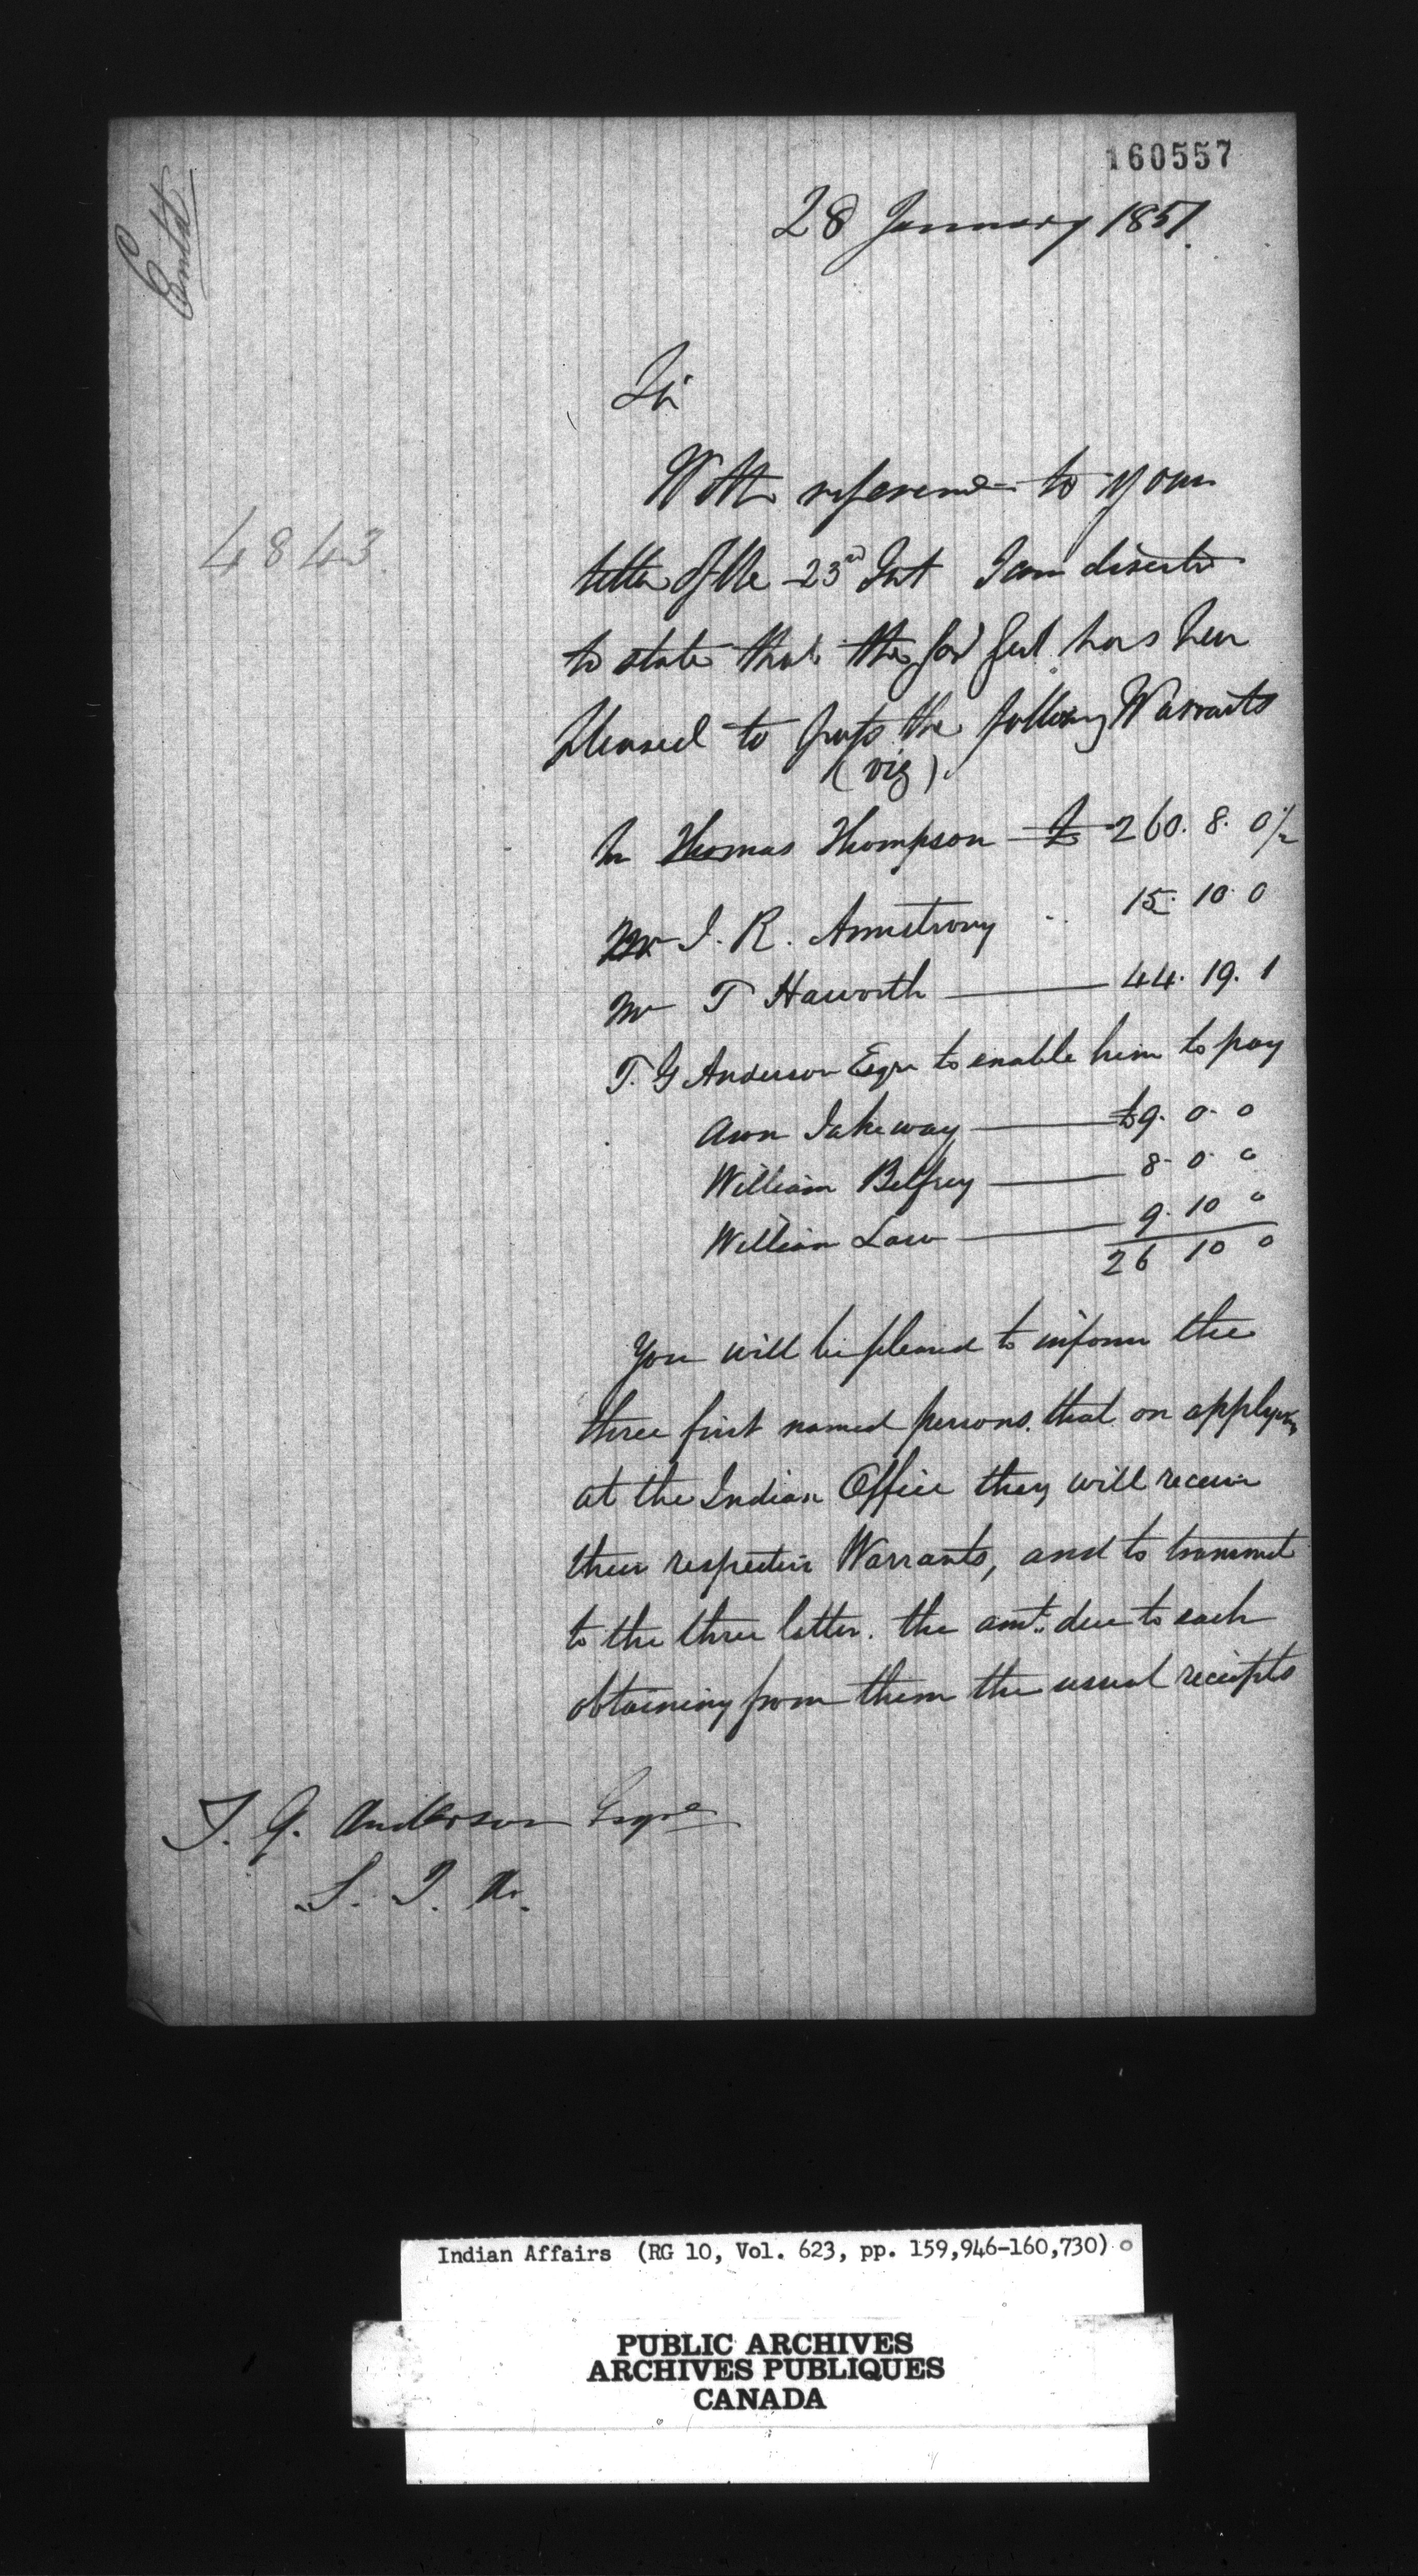 160557
28 January 1851.
Entd
Sir
With reference to your
4843.
letter of the 23rd Inst I am directed
to state that the Gov Genl has been
pleased to pass the following Warrants
(viz).
Mr Thomas Thompson — £ 260. 8. 0½
Mr J. R. Armstrong .. 15. 10 0
Mr T Haworth — 44. 19. 1
T. G Anderson Esqr to enable him to pay
Ann Jakeway — £9. 0. 0
William Belfrey — 8. 0. 0
William Law — 9. 10 0
26 10 0
You will be pleased to inform the
three first named persons. that on applying
at the Indian Office they will receive
their respective Warrants, and to transmit
to the three latter. the amt. due to each
obtaining from them the usual receipts
T. G. Anderson Esqre
S. I. A.
Indian Affairs (RG 10, Vol. 623, pp. 159,946-160,730)
PUBLIC ARCHIVES
ARCHIVES PUBLIQUES
CANADA